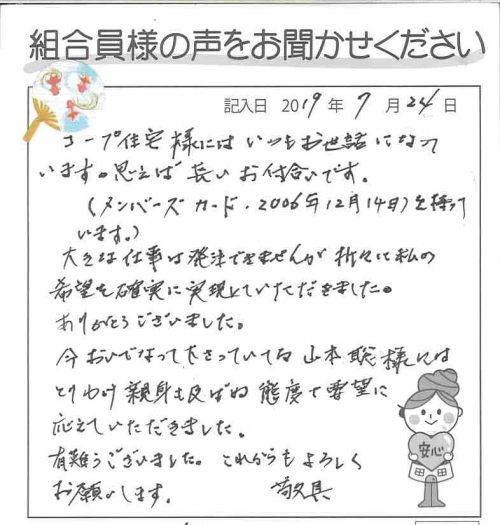 組合員様の声をお聞かせください
記入日 2019年 7月 24日
コープ住宅様にはいつもお世話になって
います。思えば長いお付合いです。
(メンバーズカード・2006年12月14日)を持って
います。)
大きな仕事は発注できませんが折々に私の
希望を確実に実現していただきました。
ありがとうございました。
今おいでなって下さっている山本聡様には
とりわけ親身も及ばぬ態度で要望に
応えていただきました。
有難うございました。これからもよろしく
お願いします。 敬具
安心